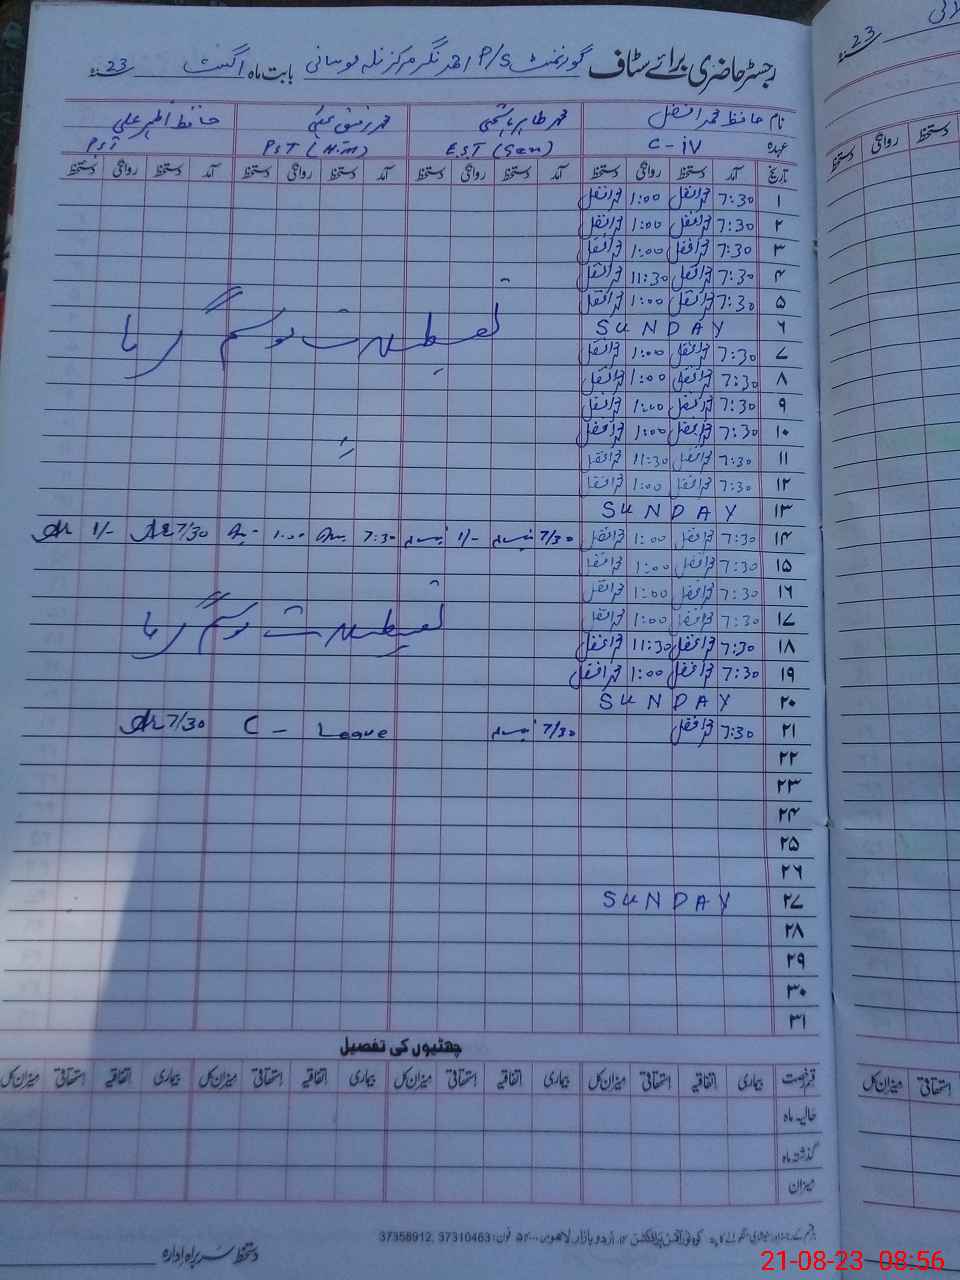 رجسٹر حاضری برائے سٹاف گورنمنٹ P/S احمد نگر مرکز بابت ماہ اگست 23ء
نام حافظ محمد افضل محمد طاہر محمد رفیق حافظ اظہر علی
عہدہ C-iV EST (Gen) PST (H.M) PST
تاریخ آمد دستخط روانگی دستخط آمد دستخط روانگی دستخط آمد دستخط روانگی دستخط آمد دستخط روانگی دستخط
۱ 7:30 محمد افضل 1:00 محمد افضل
۲ 7:30 محمد افضل 1:00 محمد افضل
۳ 7:30 محمد افضل 1:00 محمد افضل
۴ 7:30 محمد افضل 11:30 محمد افضل
۵ 7:30 محمد افضل 1:00 محمد افضل
۶ SUNDAY
تعطیلات موسم گرما
۷ 7:30 محمد افضل 1:00 محمد افضل
۸ 7:30 محمد افضل 1:00 محمد افضل
۹ 7:30 محمد افضل 1:00 محمد افضل
۱۰ 7:30 محمد افضل 1:00 محمد افضل
۱۱ 7:30 محمد افضل 11:30 محمد افضل
۱۲ 7:30 محمد افضل 1:00 محمد افضل
۱۳ SUNDAY
۱۴ 7:30 محمد افضل 1:00 محمد افضل 7/30 1/- 7:30 1:00 7/30 1/-
۱۵ 7:30 محمد افضل 1:00 محمد افضل
۱۶ 7:30 محمد افضل 1:00 محمد افضل
۱۷ 7:30 محمد افضل 1:00 محمد افضل
تعطیلات موسم گرما
۱۸ 7:30 محمد افضل 11:30 محمد افضل
۱۹ 7:30 محمد افضل 1:00 محمد افضل
۲۰ SUNDAY
۲۱ 7:30 محمد افضل 7/30 C - Leave 7/30
۲۲
۲۳
۲۴
۲۵
۲۶
۲۷ SUNDAY
۲۸
۲۹
۳۰
۳۱
چھٹیوں کی تفصیل
قسم رخصت بیماری اتفاقیہ استحقاقی میزان کل بیماری اتفاقیہ استحقاقی میزان کل بیماری اتفاقیہ استحقاقی میزان کل بیماری اتفاقیہ استحقاقی میزان کل
حالیہ ماہ
گذشتہ ماہ
میزان
اردو بازار لاہور فون: 37310463, 37358912
دستخط سربراہ ادارہ
23ء
دستخط روانگی دستخط
استحقاقی میزان کل
21-08-23 08:56